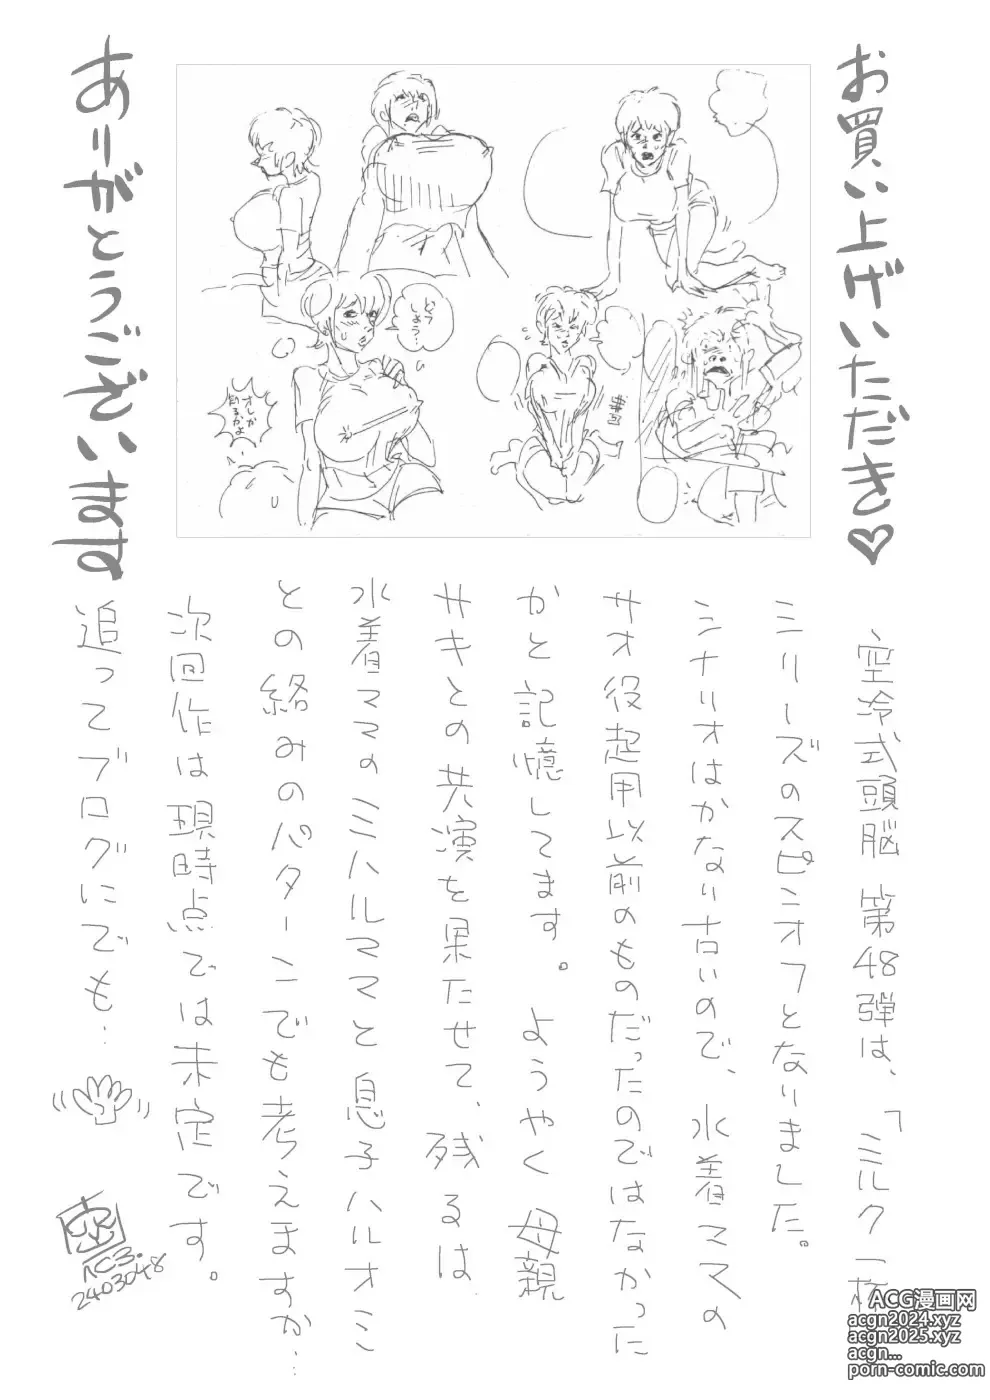 お買い上げいただき♡
ありがとうございます
どうしましょう…
オレが
困るかよ
空冷式頭脳 第48弾は、「ミルク一杯
シリーズのスピンオフとなりました。
シナリオはかなり古いので、水着ママの
サオ役起用以前のものだったのではなかった
かと記憶してます。ようやく母親
サキとの共演を果たせて、残るは
水着ママのミハルママと息子ハルオミ
との絡みのパターンでも考えますか…
次回作は現時点では未定です。
追ってブログにでも…
AC3.
2403048
ACG漫画网
acgn2024.xyz
acgn2025.xyz
acgn...
porn-comic.com